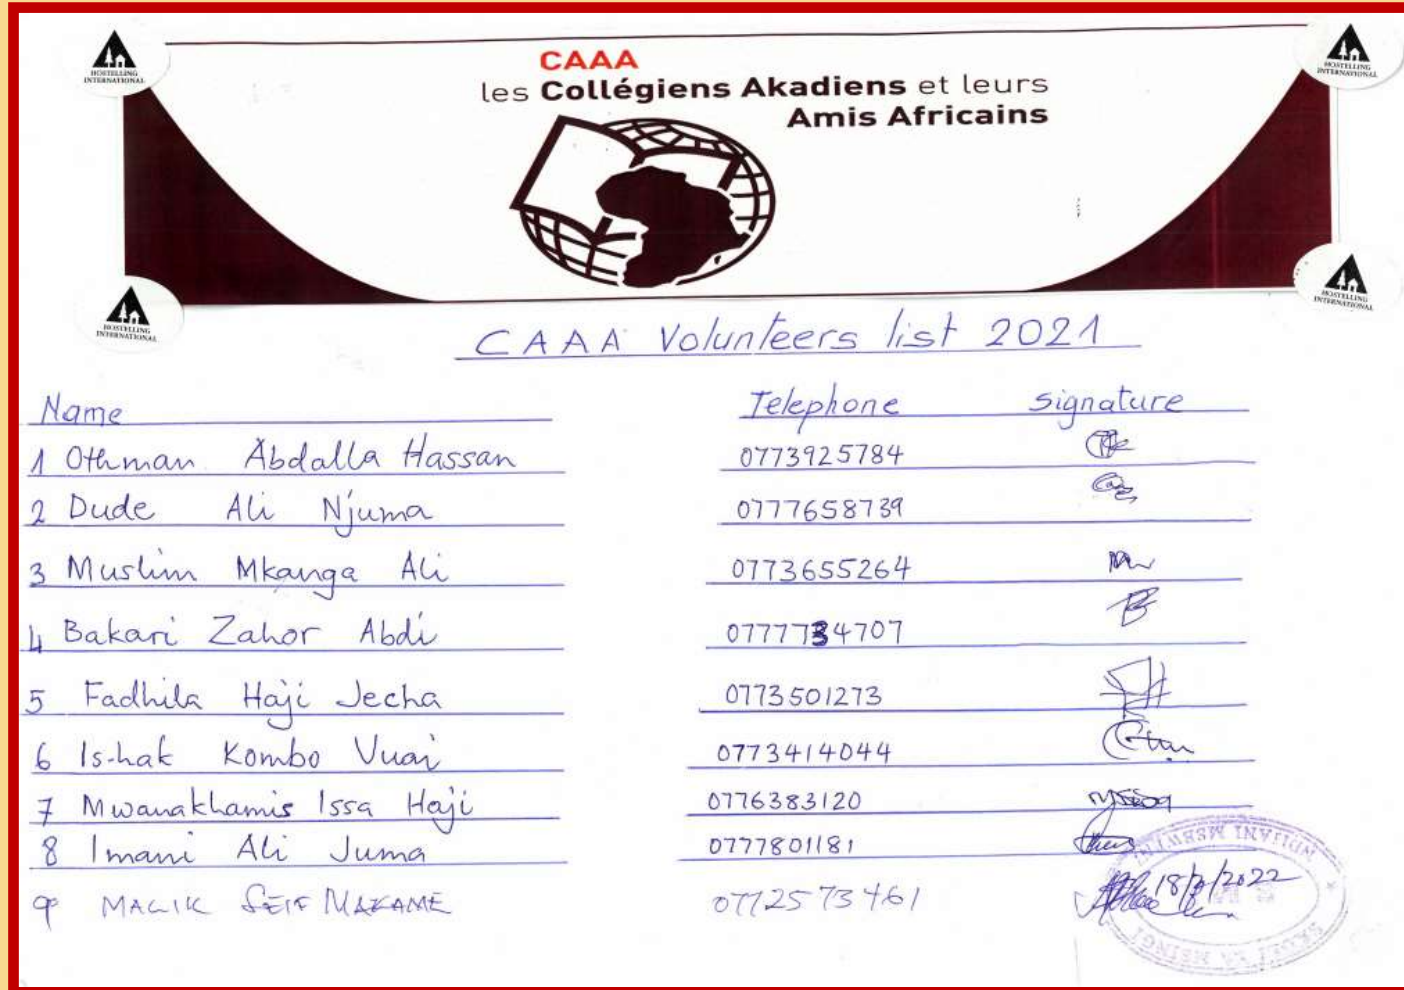 HOSTELLING
INTERNATIONAL
HOSTELLING
INTERNATIONAL
CAAA
les Collégiens Akadiens et leurs
Amis Africains
HOSTELLING
INTERNATIONAL
HOSTELLING
INTERNATIONAL
CAAA Volunteers list 2021
Name Telephone Signature
1 Othman Abdalla Hassan 0773925784
2 Dude Ali Njuma 0777658739
3 Muslim Mkanga Ali 0773655264
4 Bakari Zahor Abdi 0777734707
5 Fadhila Haji Jecha 0773501273
6 Is-hak Kombo Vuai 0773414044
7 Mwanakhamis Issa Haji 0776383120
8 Imani Ali Juma 0777801181
9 MALIK SEIF MAKAME 0772573461
NDIJANI MSEWENI
SKULI YA MSINGI